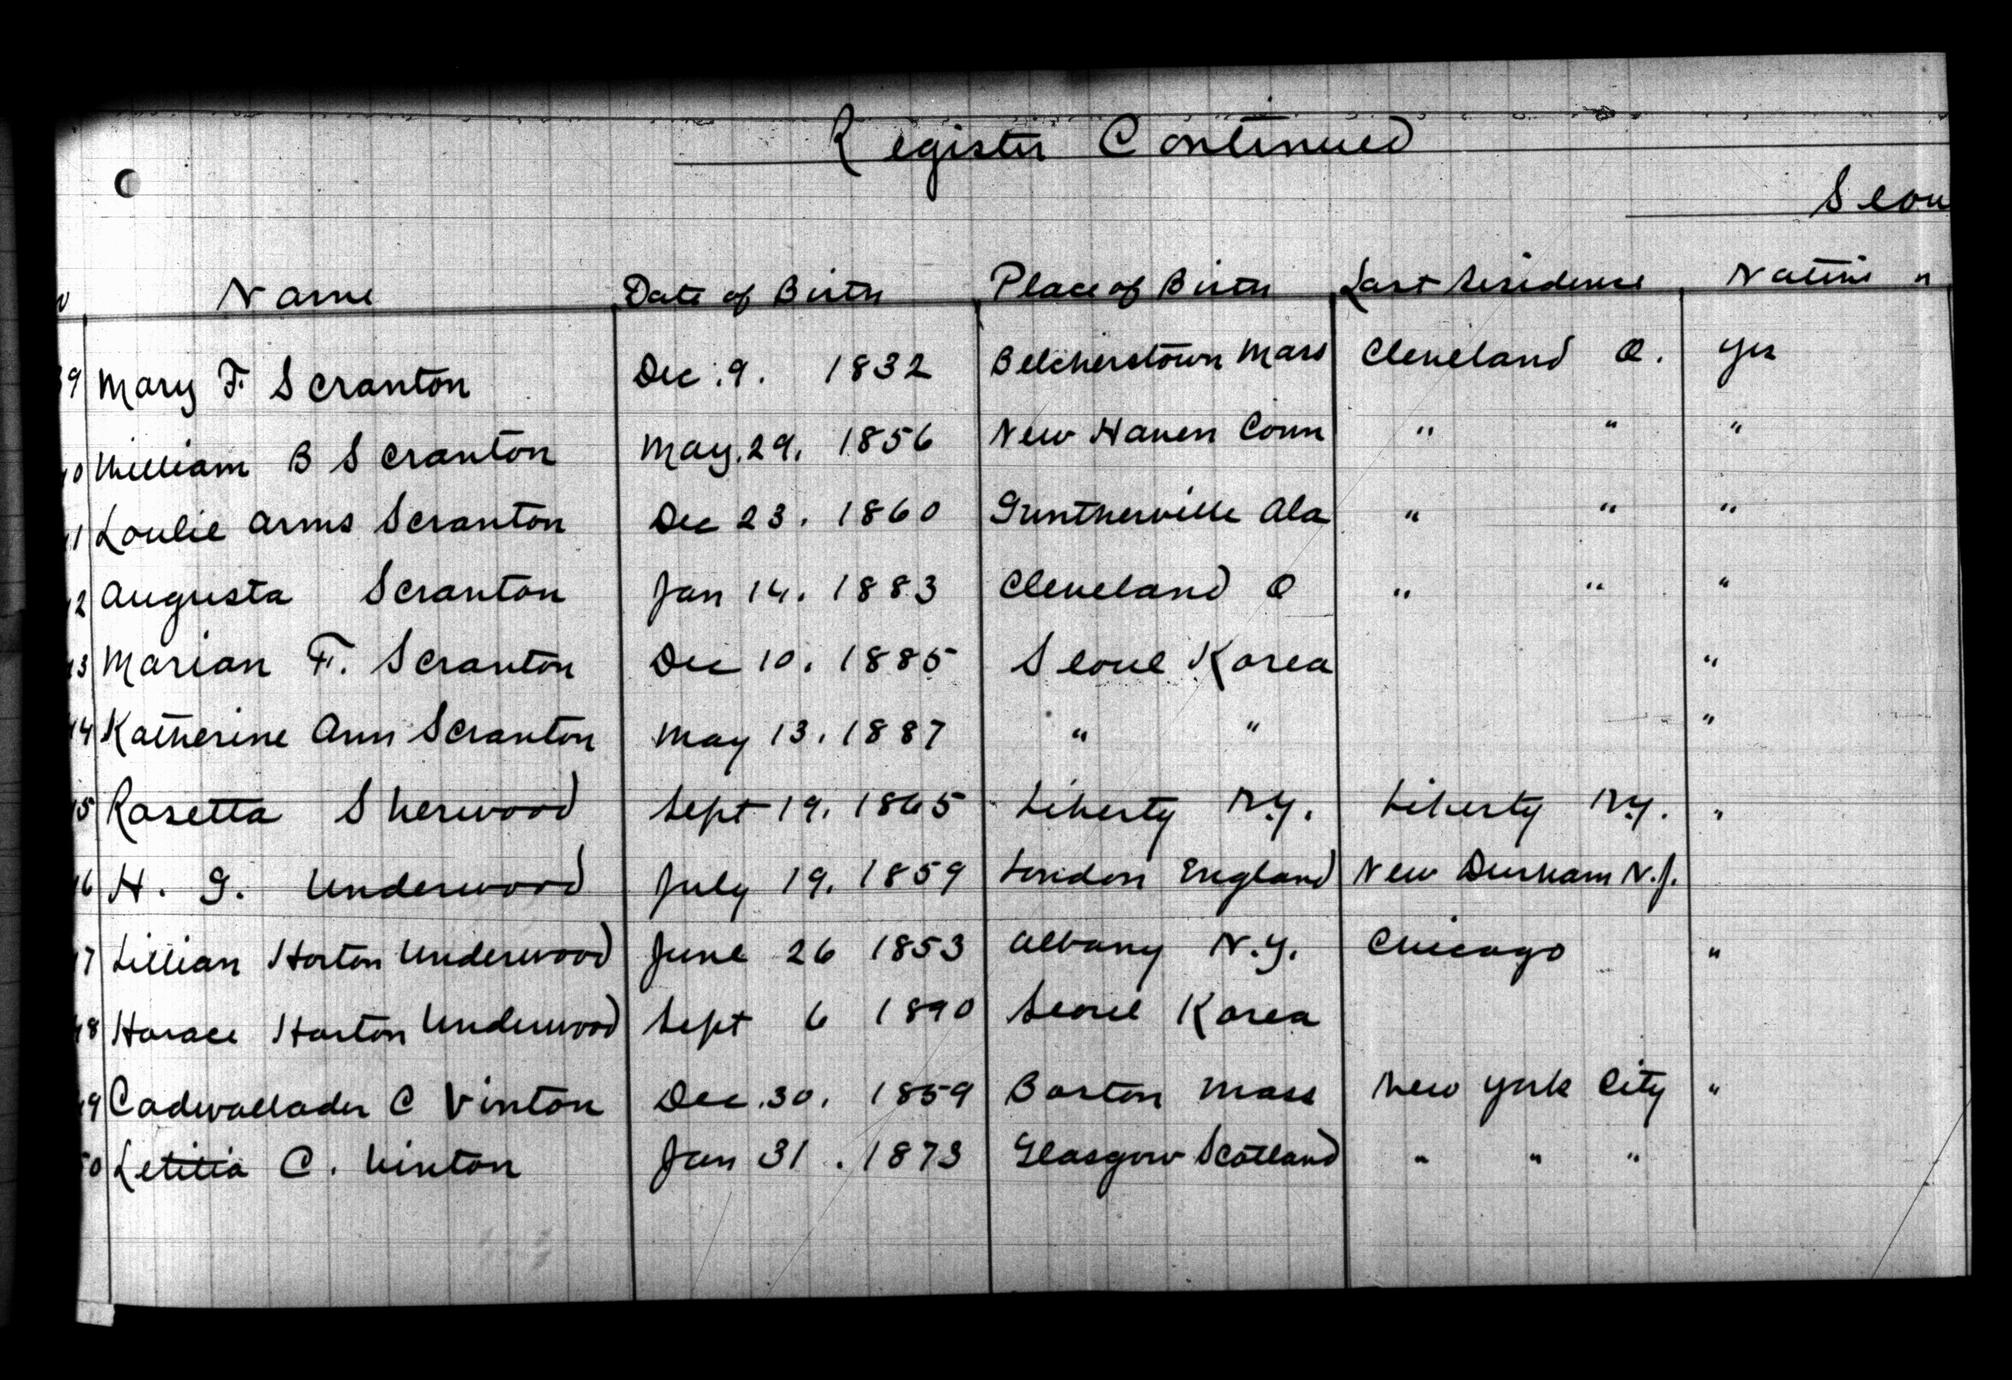 Register Continued
Seou
No Name Date of Birth Place of Birth Last Residence Native
39 Mary F. Scranton Dec. 9. 1832 Belcherstown Mass Cleveland O. Yes
40 William B Scranton May. 29. 1856 New Haven Conn " " "
41 Loulie Arms Scranton Dec 23. 1860 Guntherville Ala " " "
42 Augusta Scranton Jan 14. 1883 Cleveland O " " "
43 Marian F. Scranton Dec 10. 1885 Seoul Korea "
44 Katherine Ann Scranton May 13. 1887 " " "
45 Rosetta Sherwood Sept 19. 1865 Liberty N.Y. Liberty N.Y. "
46 H. G. Underwood July 19. 1859 London England New Durham N.J.
47 Lillian Horton Underwood June 26 1853 Albany N.Y. Chicago "
48 Horace Horton Underwood Sept 6 1890 Seoul Korea
49 Cadwallader C Vinton Dec. 30. 1859 Boston Mass New York City "
50 Letitia C. Vinton Jan 31. 1873 Glasgow Scotland " " "